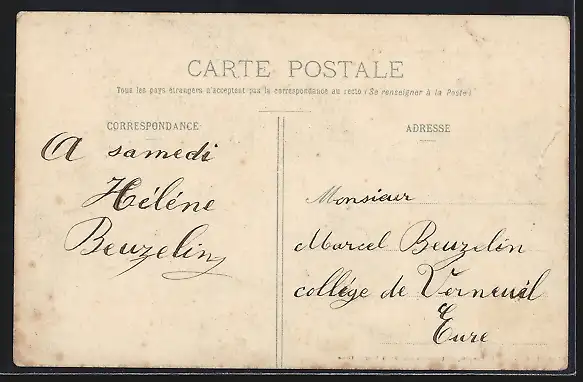 CARTE POSTALE
Tous les pays étrangers n'acceptent pas la correspondance au recto (Se renseigner à la Poste)
CORRESPONDANCE
A samedi
Hélène
Beuzelin
ADRESSE
Monsieur
Marcel Beuzelin
collége de Verneuil
Eure